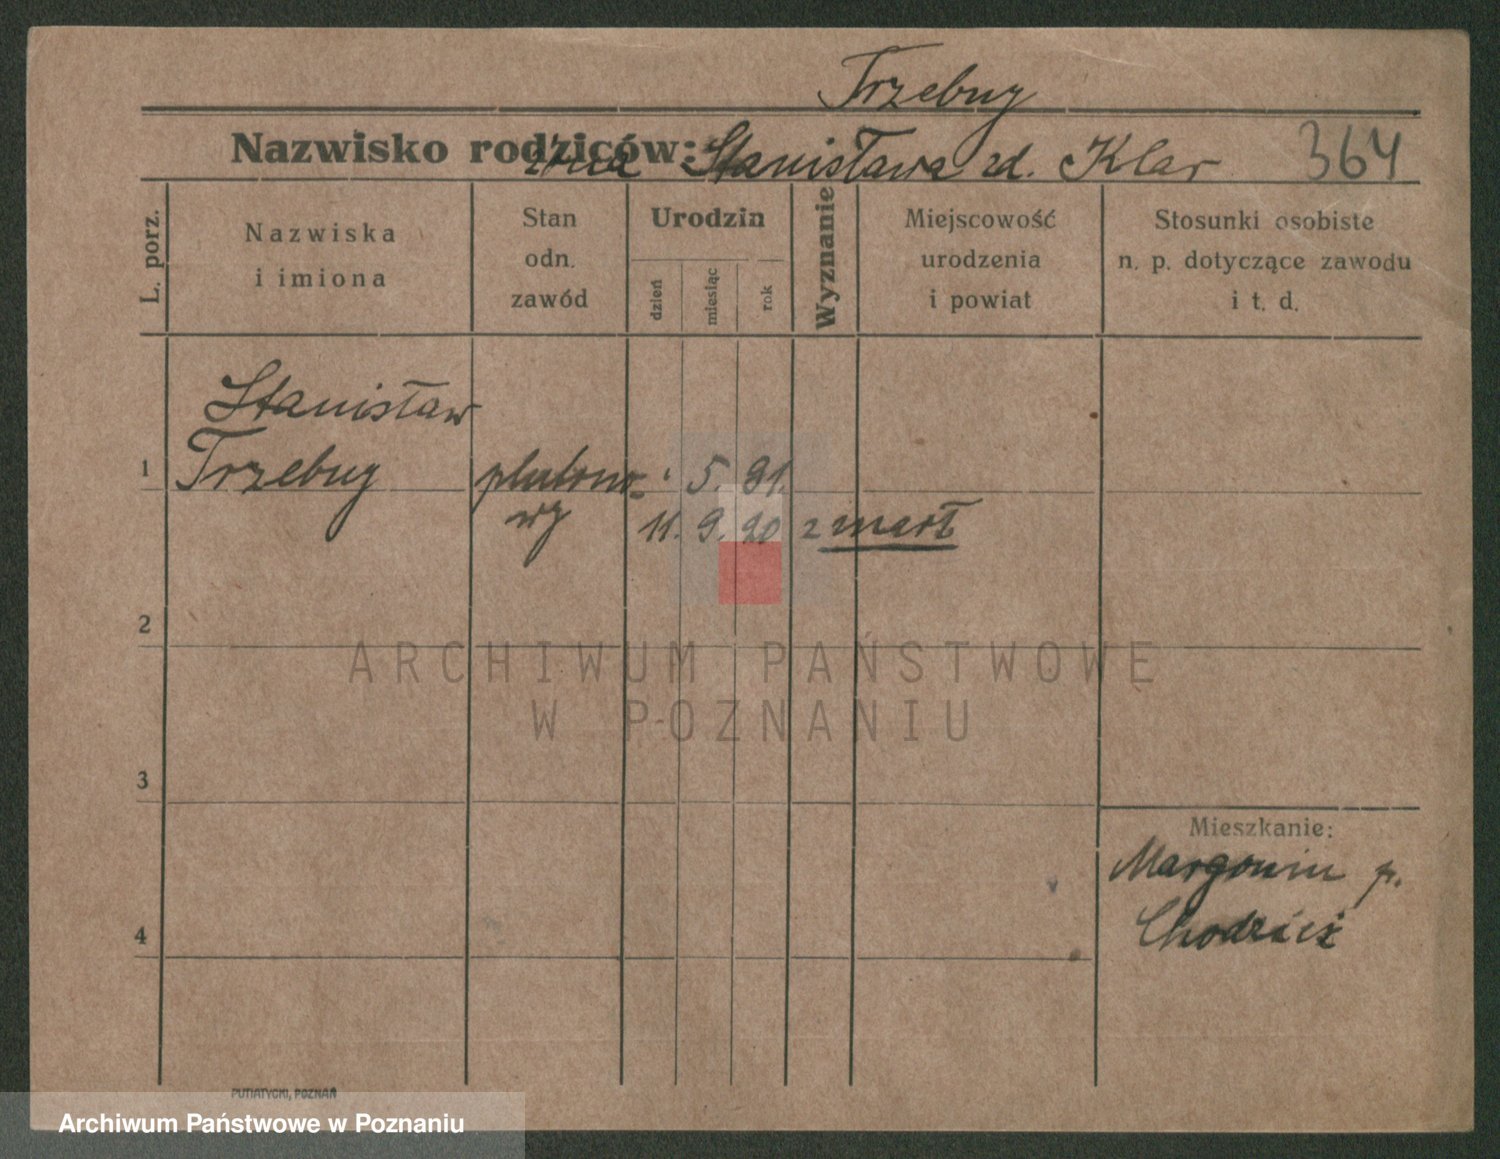 Trzebny
Nazwisko rodziców: Stanisława zd. Klar 364
L. porz.
Nazwiska
i imiona
Stan
odn.
zawód
Urodzin
dzień
miesiąc
rok
Wyznanie
Miejscowość
urodzenia
i powiat
Stosunki osobiste
n. p. dotyczące zawodu
i t. d.
Stanisław
1 Trzebny plutono- 5. 91.
wy 11. 9. 20 zmarł
2
ARCHIWUM PAŃSTWOWE
W POZNANIU
3
Mieszkanie:
Margonin p.
Chodzież
4
PUTIATYCKI, POZNAŃ
Archiwum Państwowe w Poznaniu